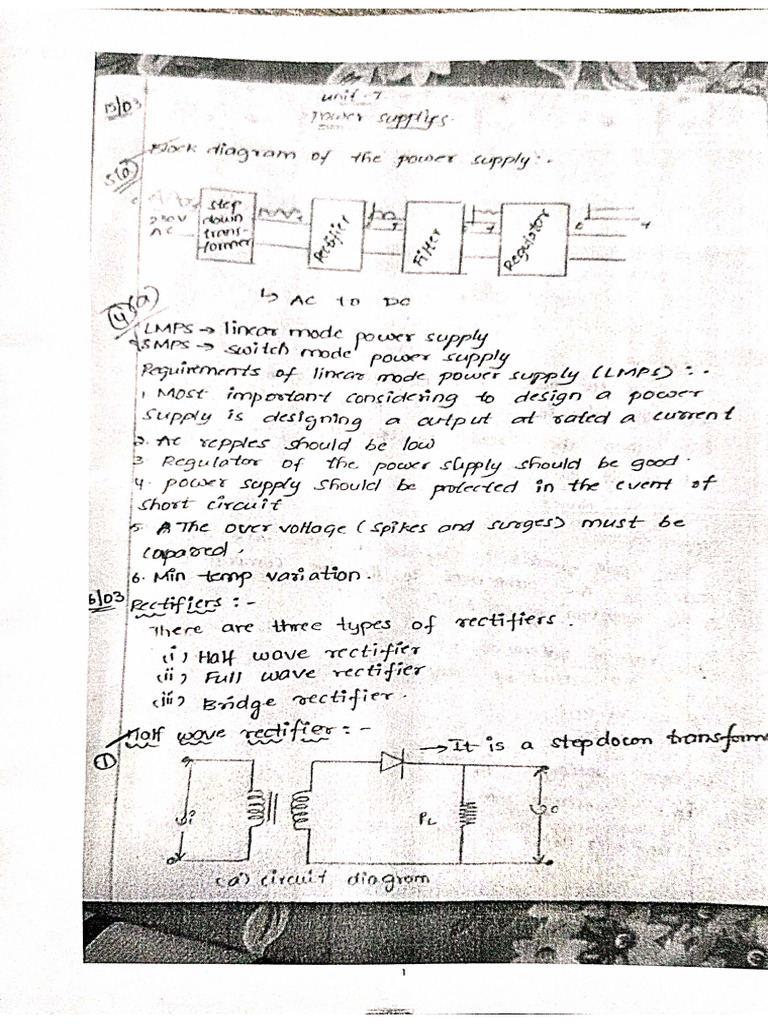 unit-7
15/03
Power supplys.
5(a)
Block diagram of the power supply:-
230V
AC
step
down
trans-
former
Rectifier
Filter
Regulator
↳ AC to DC
4(a)
LMPS → linear mode power supply
SMPS → switch mode power supply
Requirements of linear mode power supply (LMPS):-
1. Most important considering to design a power
supply is designing a output at rated a current
2. AC repples should be low
3. Regulator of the power supply should be good.
4. power supply should be protected in the event of
short circuit
5. A The over voltage (spikes and surges) must be
capared.
6. Min temp variation.
6/03
Rectifiers:-
There are three types of rectifiers.
(i) Half wave rectifier
(ii) Full wave rectifier
(iii) Bridge rectifier.
Half wave rectifier:-
→ It is a stepdocon transform
1
RL
(a) circuit diagram
1